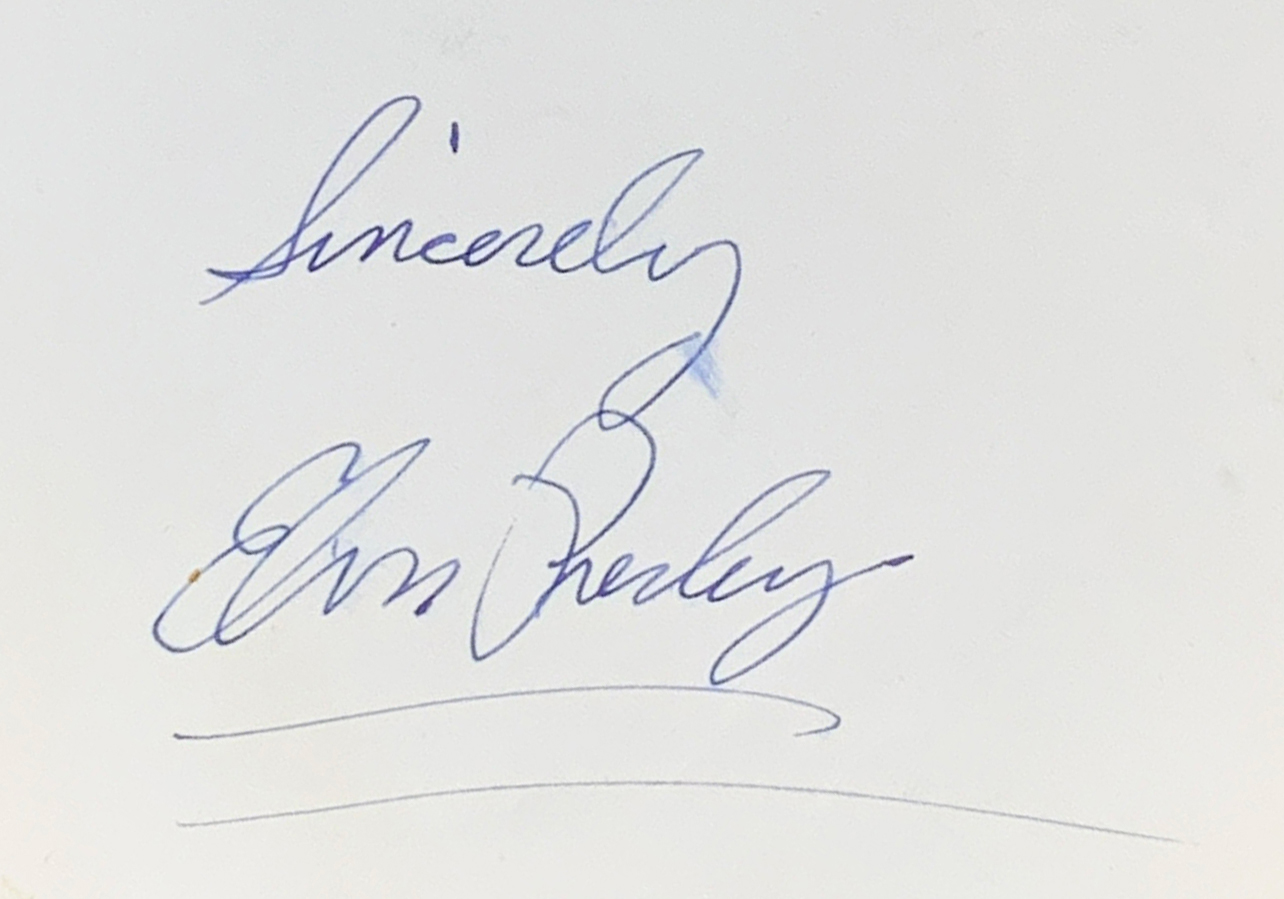 Sincerely
Elvis Presley